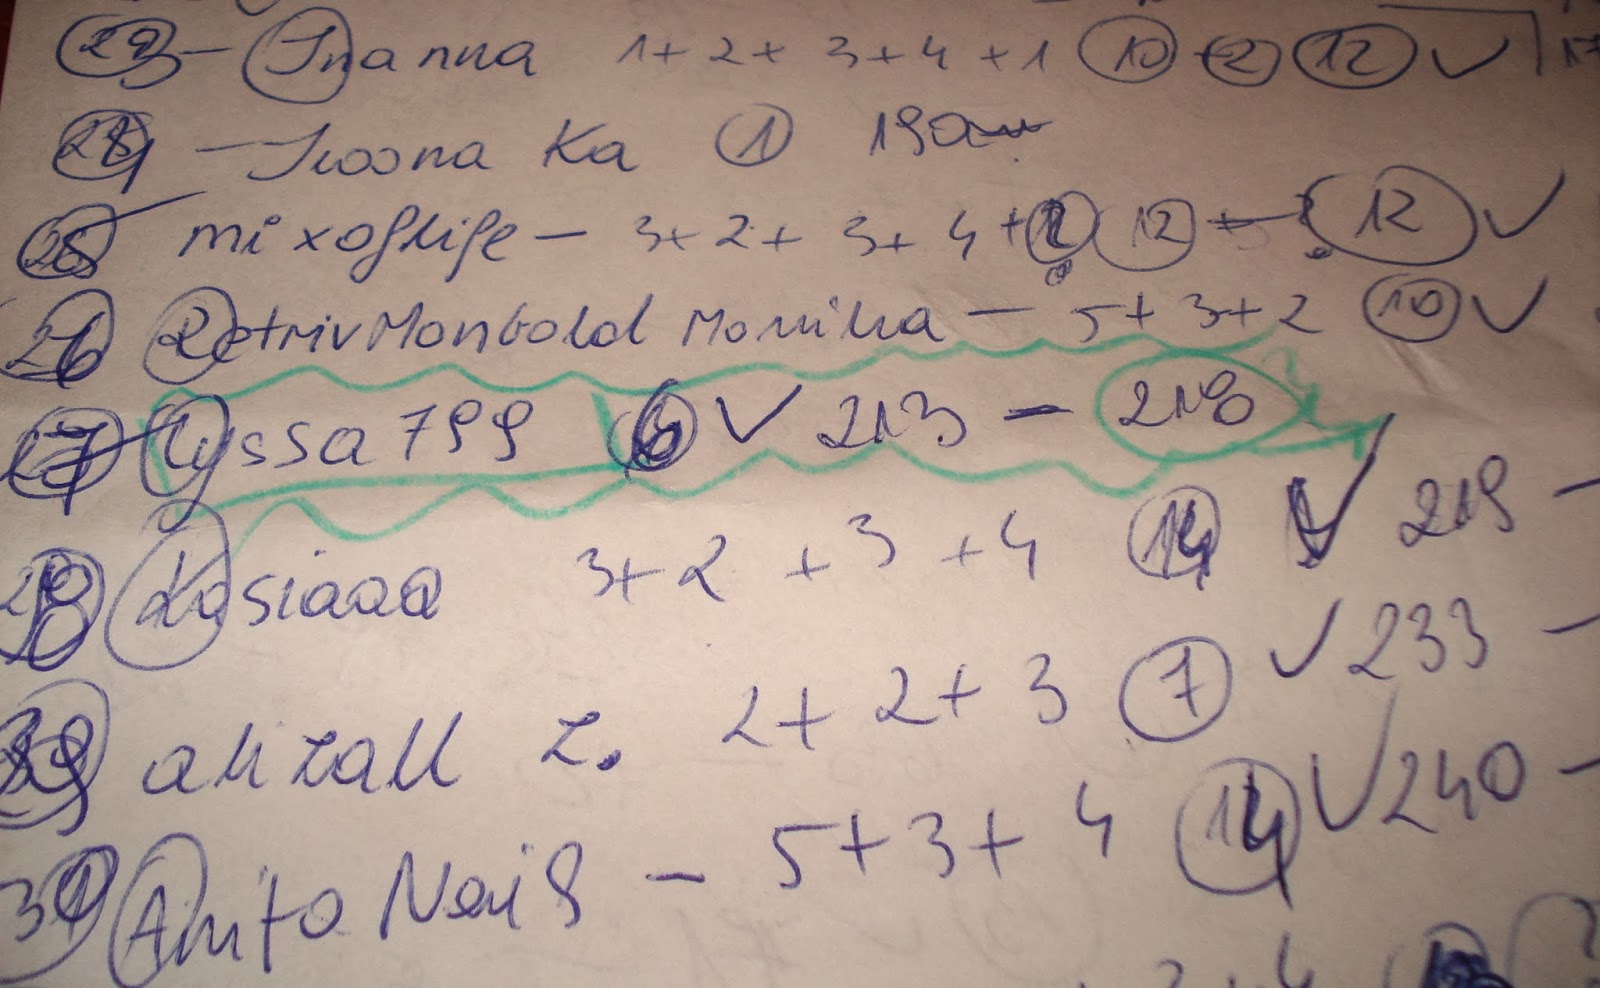 23 - Inanna 1+2+3+4+1 10 +2 12 ✓ 17
24 - Iwona Ka 1 190
25 mixoflife - 3+2+3+4+ 12 + 12 ✓
26 RetrivMonbold Monika - 5+3+2 10 ✓
27 lyssa 799 6 ✓ 213 - 218
28 Kasiaaa 3+2+3+4 14 ✓ 219 -
alizall z. 2+2+3 7 ✓ 233 -
Anita Nails - 5+3+4 14 ✓ 240 -
3+4